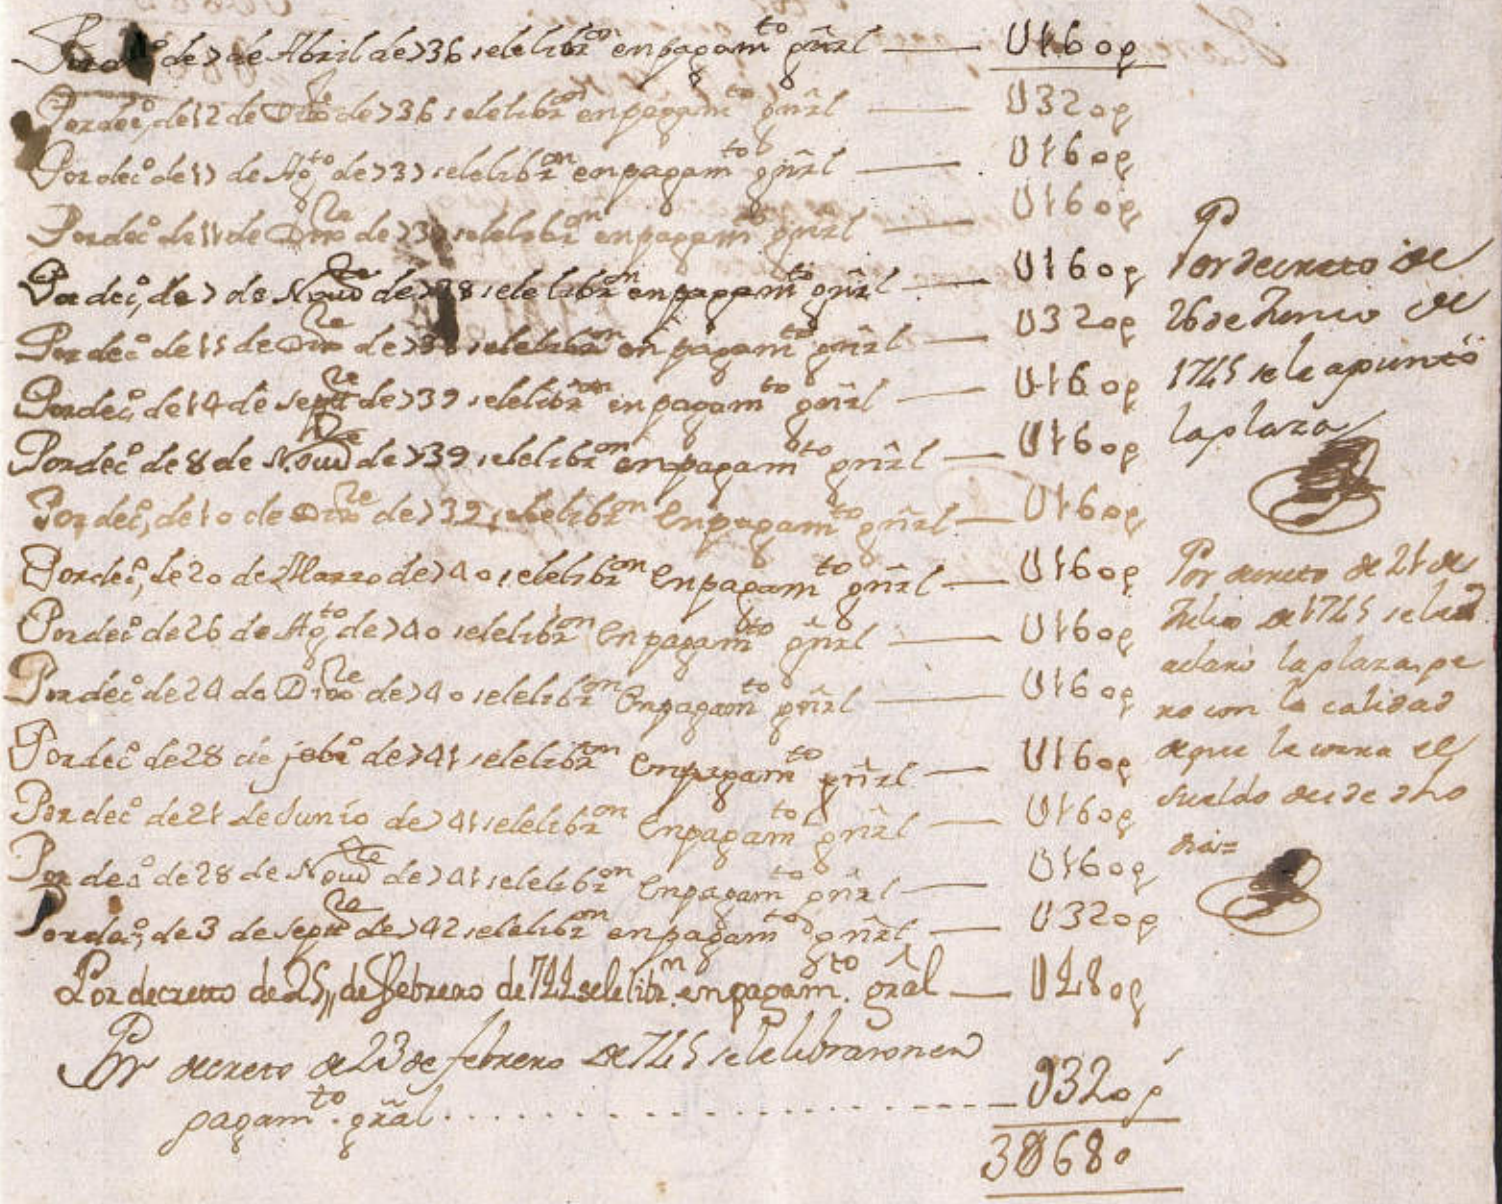 Por dec.º de 7 de Abril de 736 se le libr.on en pagam.to gñrl — U160p
Por dec.º, de 12 de Dizre de 736 se le libr.on en pagam.to gñrl — U320p
Por dec.º de 17 de Ag.to de 737 se le libr.on en pagam.to gñrl — U160p
Por dec.º de 11 de Dizre de 73 se le libr.on en pagam.to gñrl — U160p
Por dec.º, de 7 de Noure de 738 se le libr.on en pagam.to gñrl — U160p
Por dec.º de 15 de Dizre de 738 se le libr.on en pagam.to gñrl — U320p
Por dec.º, de 14 de Septre de 739 se le libr.on en pagam.to gñrl — U160p
Por dec.º de 8 de Noure de 739 se le libr.on en pagam.to gñrl — U160p
Por dec.º, de 10 de Dizre de 739 se le libr.on En pagam.to gñrl — U160p
Por dec.º, de 20 de Marzo de 740 se le libr.on En pagam.to gñrl — U160p
Por dec.º de 26 de Ag.to de 740 se le libr.on En pagam.to gñrl — U160p
Por dec.º de 24 de Dizre de 740 se le libr.on En pagam.to gñrl — U160p
Por dec.º de 28 de febr.º de 741 se le libr.on En pagam.to gñrl — U160p
Por dec.º de 21 de Junio de 741 se le libr.on En pagam.to gñrl — U160p
Por dec.º de 28 de Noure de 741 se le libr.on En pagam.to gñrl — U160p
Por dec.º, de 3 de Septre de 742 se le libr.on en pagam.to gñrl — U320p
Por decretto de 25,, de Febrero de 744 se le libr.n en pagam.to grãl — U480p
Por decreto de 23 de febrero de 745 se le libraron en
pagam.to grãl — U320p
3U680
Por decreto de
26 de Junio de
1745 se le apuntó
la plaza
Por decreto de 21 de
Julio de 1745 se le
aclaró la plaza, pe
ro con la calidad
de que le corra el
sueldo desde dho
dia=